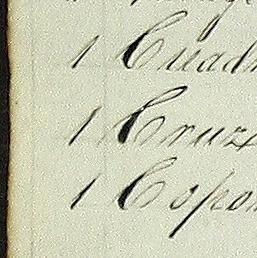 1 Cuadr
1 Cruz
1 Copon